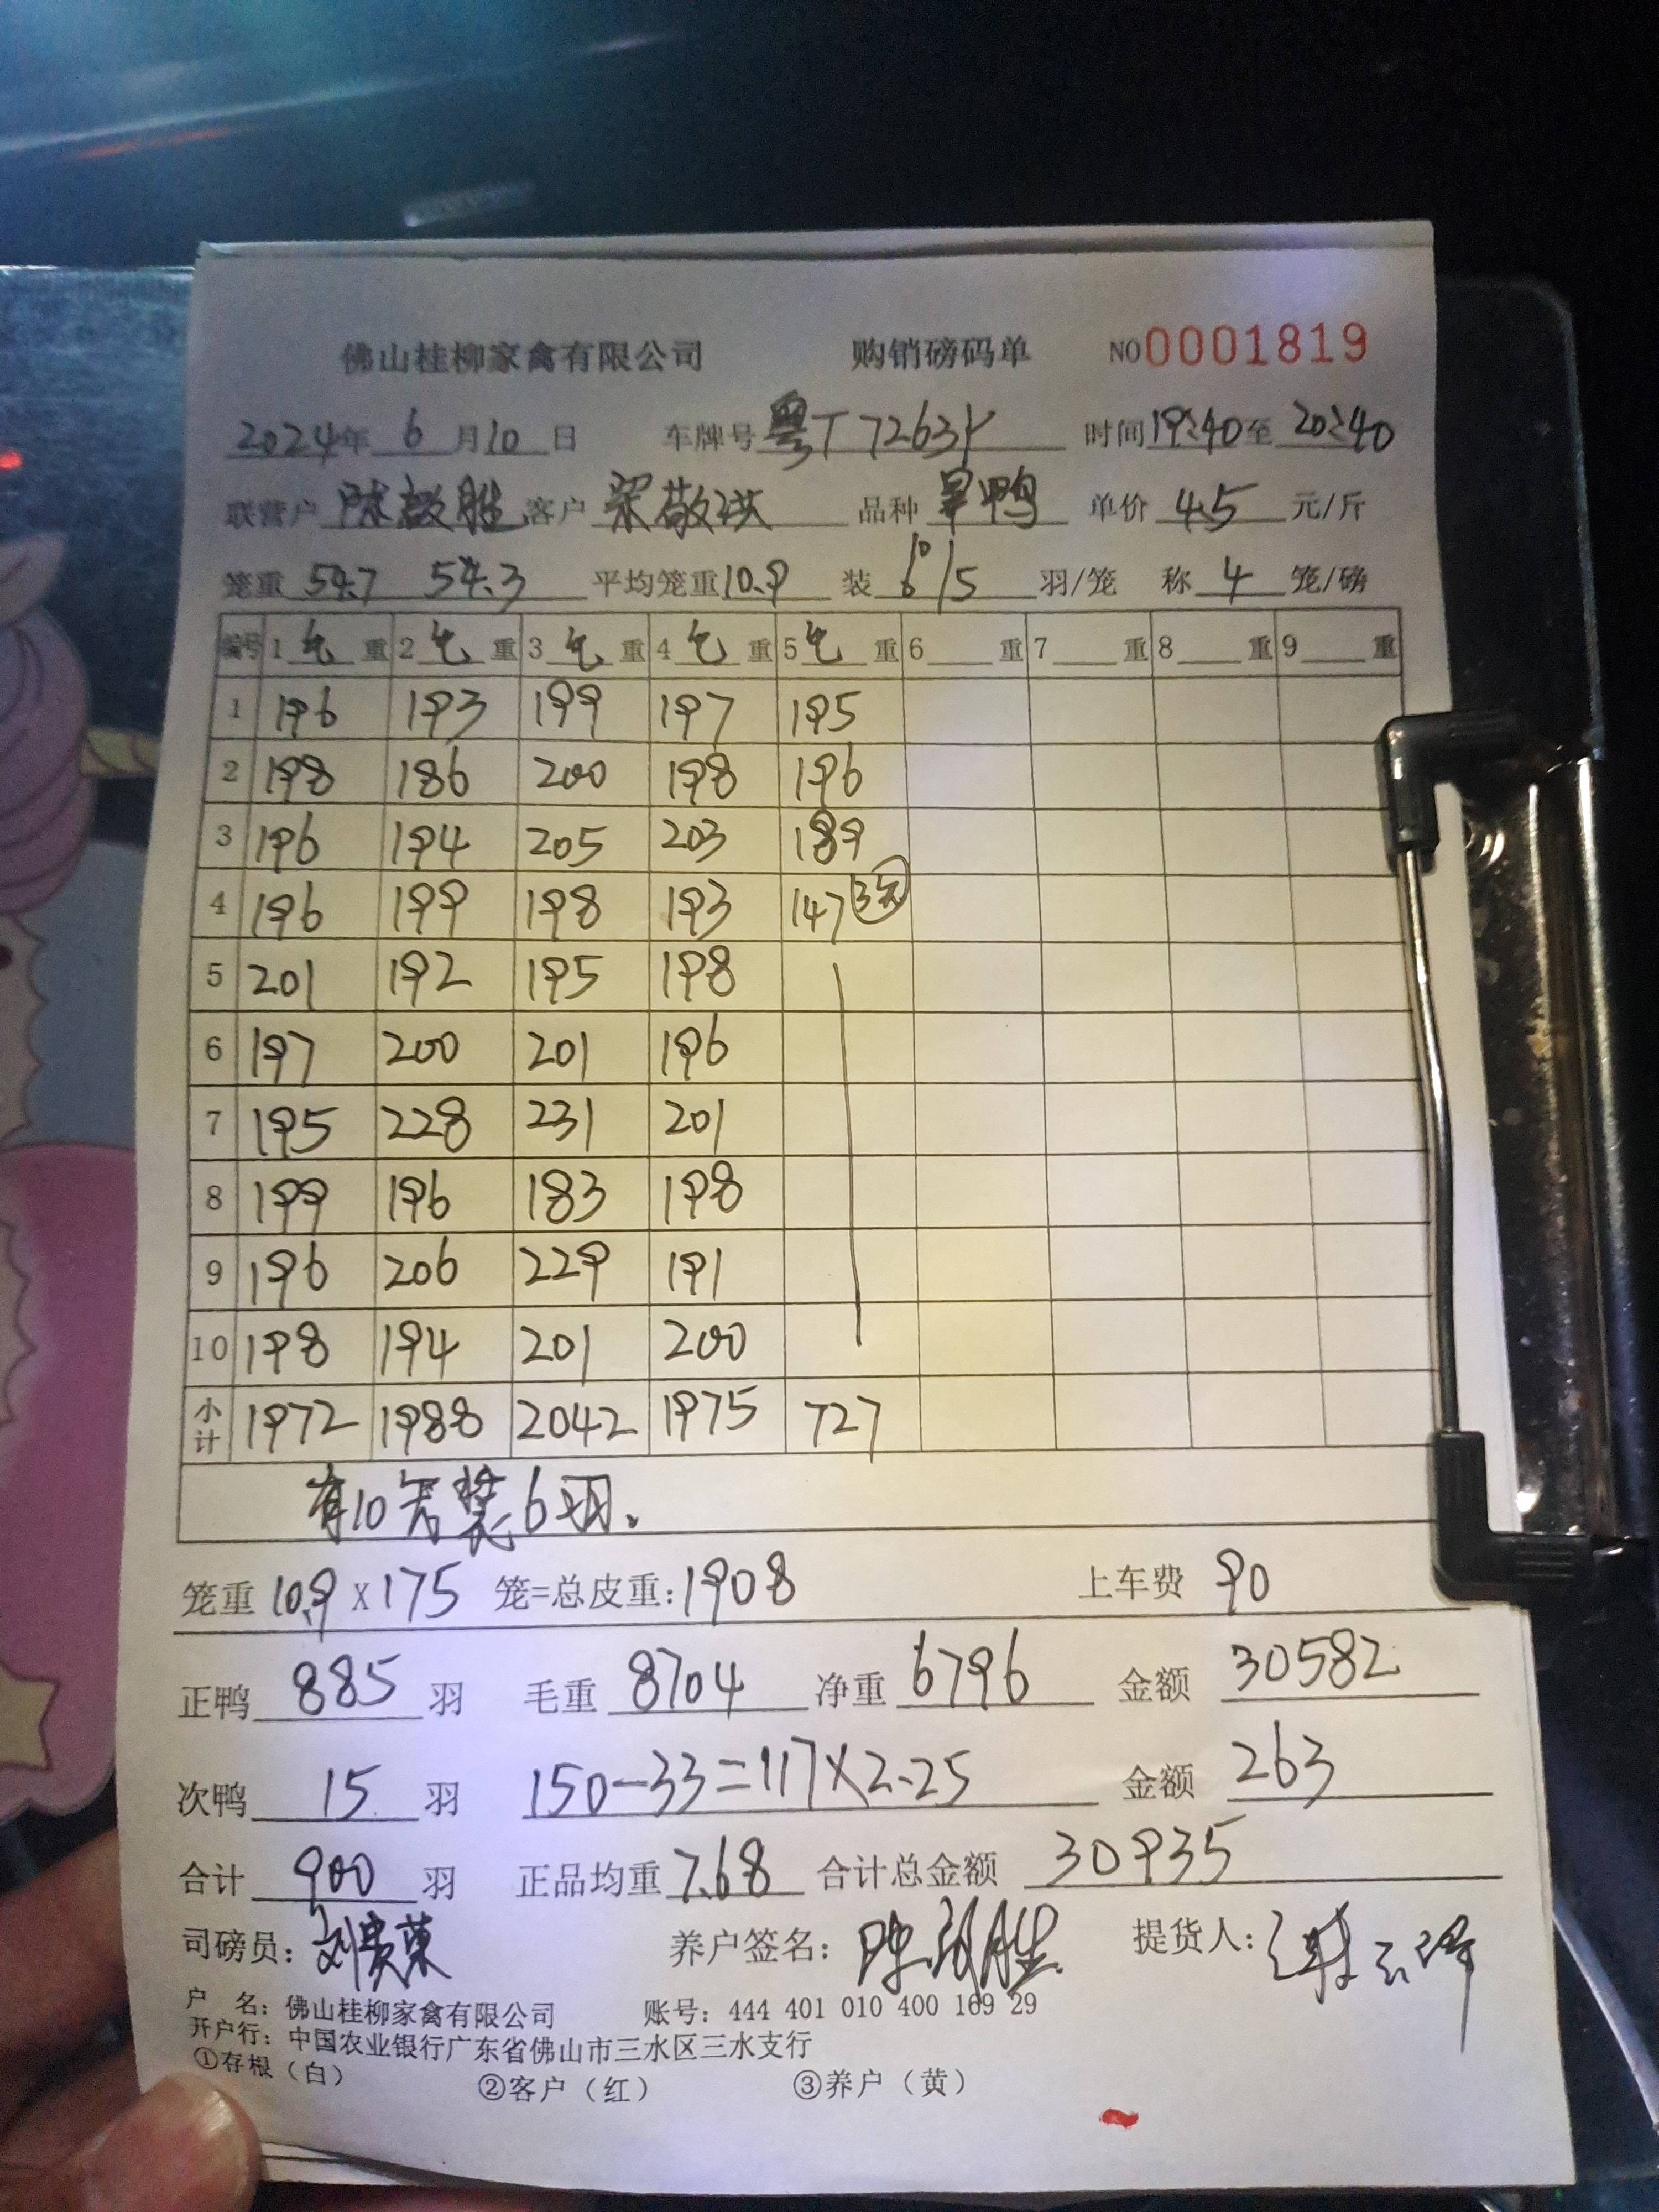 佛山桂柳家禽有限公司 购销磅码单 NO0001819
2024年 6 月10 日 车牌号 粤T 7263 时间19:40至 20:40
联营户 陈毅胜 客户 梁敬洪 品种 旱鸭 单价 4.5 元/斤
笼重 54.7 54.3 平均笼重10.9 装 6 10/5 羽/笼 称 4 笼/磅
编号 1 毛 重 2 毛 重 3 毛 重 4 毛 重 5 毛 重 6 重 7 重 8 重 9 重
1 196 193 199 197 195
2 198 186 200 198 196
3 196 194 205 203 189
4 196 199 198 193 147 3笼
5 201 192 195 198
6 197 200 201 196
7 195 228 231 201
8 199 196 183 198
9 196 206 229 191
10 198 194 201 200
小计 1972 1988 2042 1975 727
有10笼装6羽.
笼重 10.9 X 175 笼=总皮重:1908 上车费 90
正鸭 885 羽 毛重 8704 净重 6796 金额 30582
次鸭 15 羽 150-33=117X2.25 金额 263
合计 900 羽 正品均重 7.68 合计总金额 30935
司磅员: 刘贵荣 养户签名: 陈毅胜 提货人:
户 名: 佛山桂柳家禽有限公司 账号: 444 401 010 400 169 29
开户行: 中国农业银行广东省佛山市三水区三水支行
①存根(白) ②客户(红) ③养户(黄)